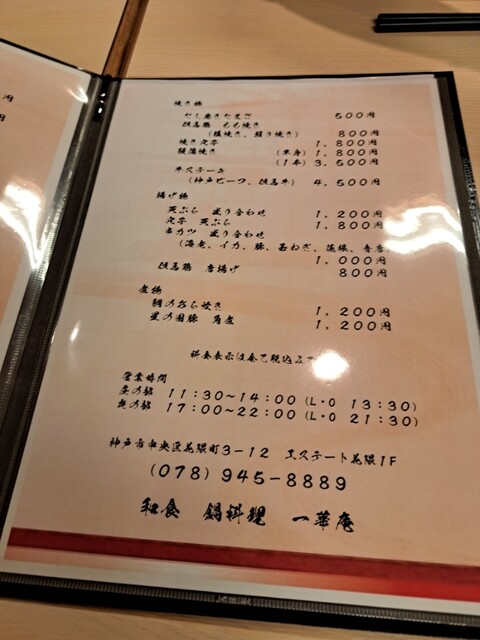 円
円
焼き物
だし巻きたまご 600円
但馬鶏 もも焼き
(塩焼き、照り焼き) 800円
焼き穴子 1,800円
鰻蒲焼き (半身) 1,800円
(1本) 3,500円
牛ステーキ
(神戸ビーフ、但馬牛) 4,500円
揚げ物
天ぷら 盛り合わせ 1,200円
穴子 天ぷら 1,800円
串カツ 盛り合わせ
(海老、イカ、豚、玉ねぎ、蓮根、青唐)
1,000円
但馬鶏 唐揚げ 800円
煮物
鯛のあら炊き 1,200円
夢の国豚 角煮 1,200円
料金表示は全て税込みで
営業時間
昼の部 11:30~14:00 (L・O 13:30)
夜の部 17:00~22:00 (L・O 21:30)
神戸市中央区花隈町3-12 エステート花隈1F
(078) 945-8889
和食 鍋料理 一華庵